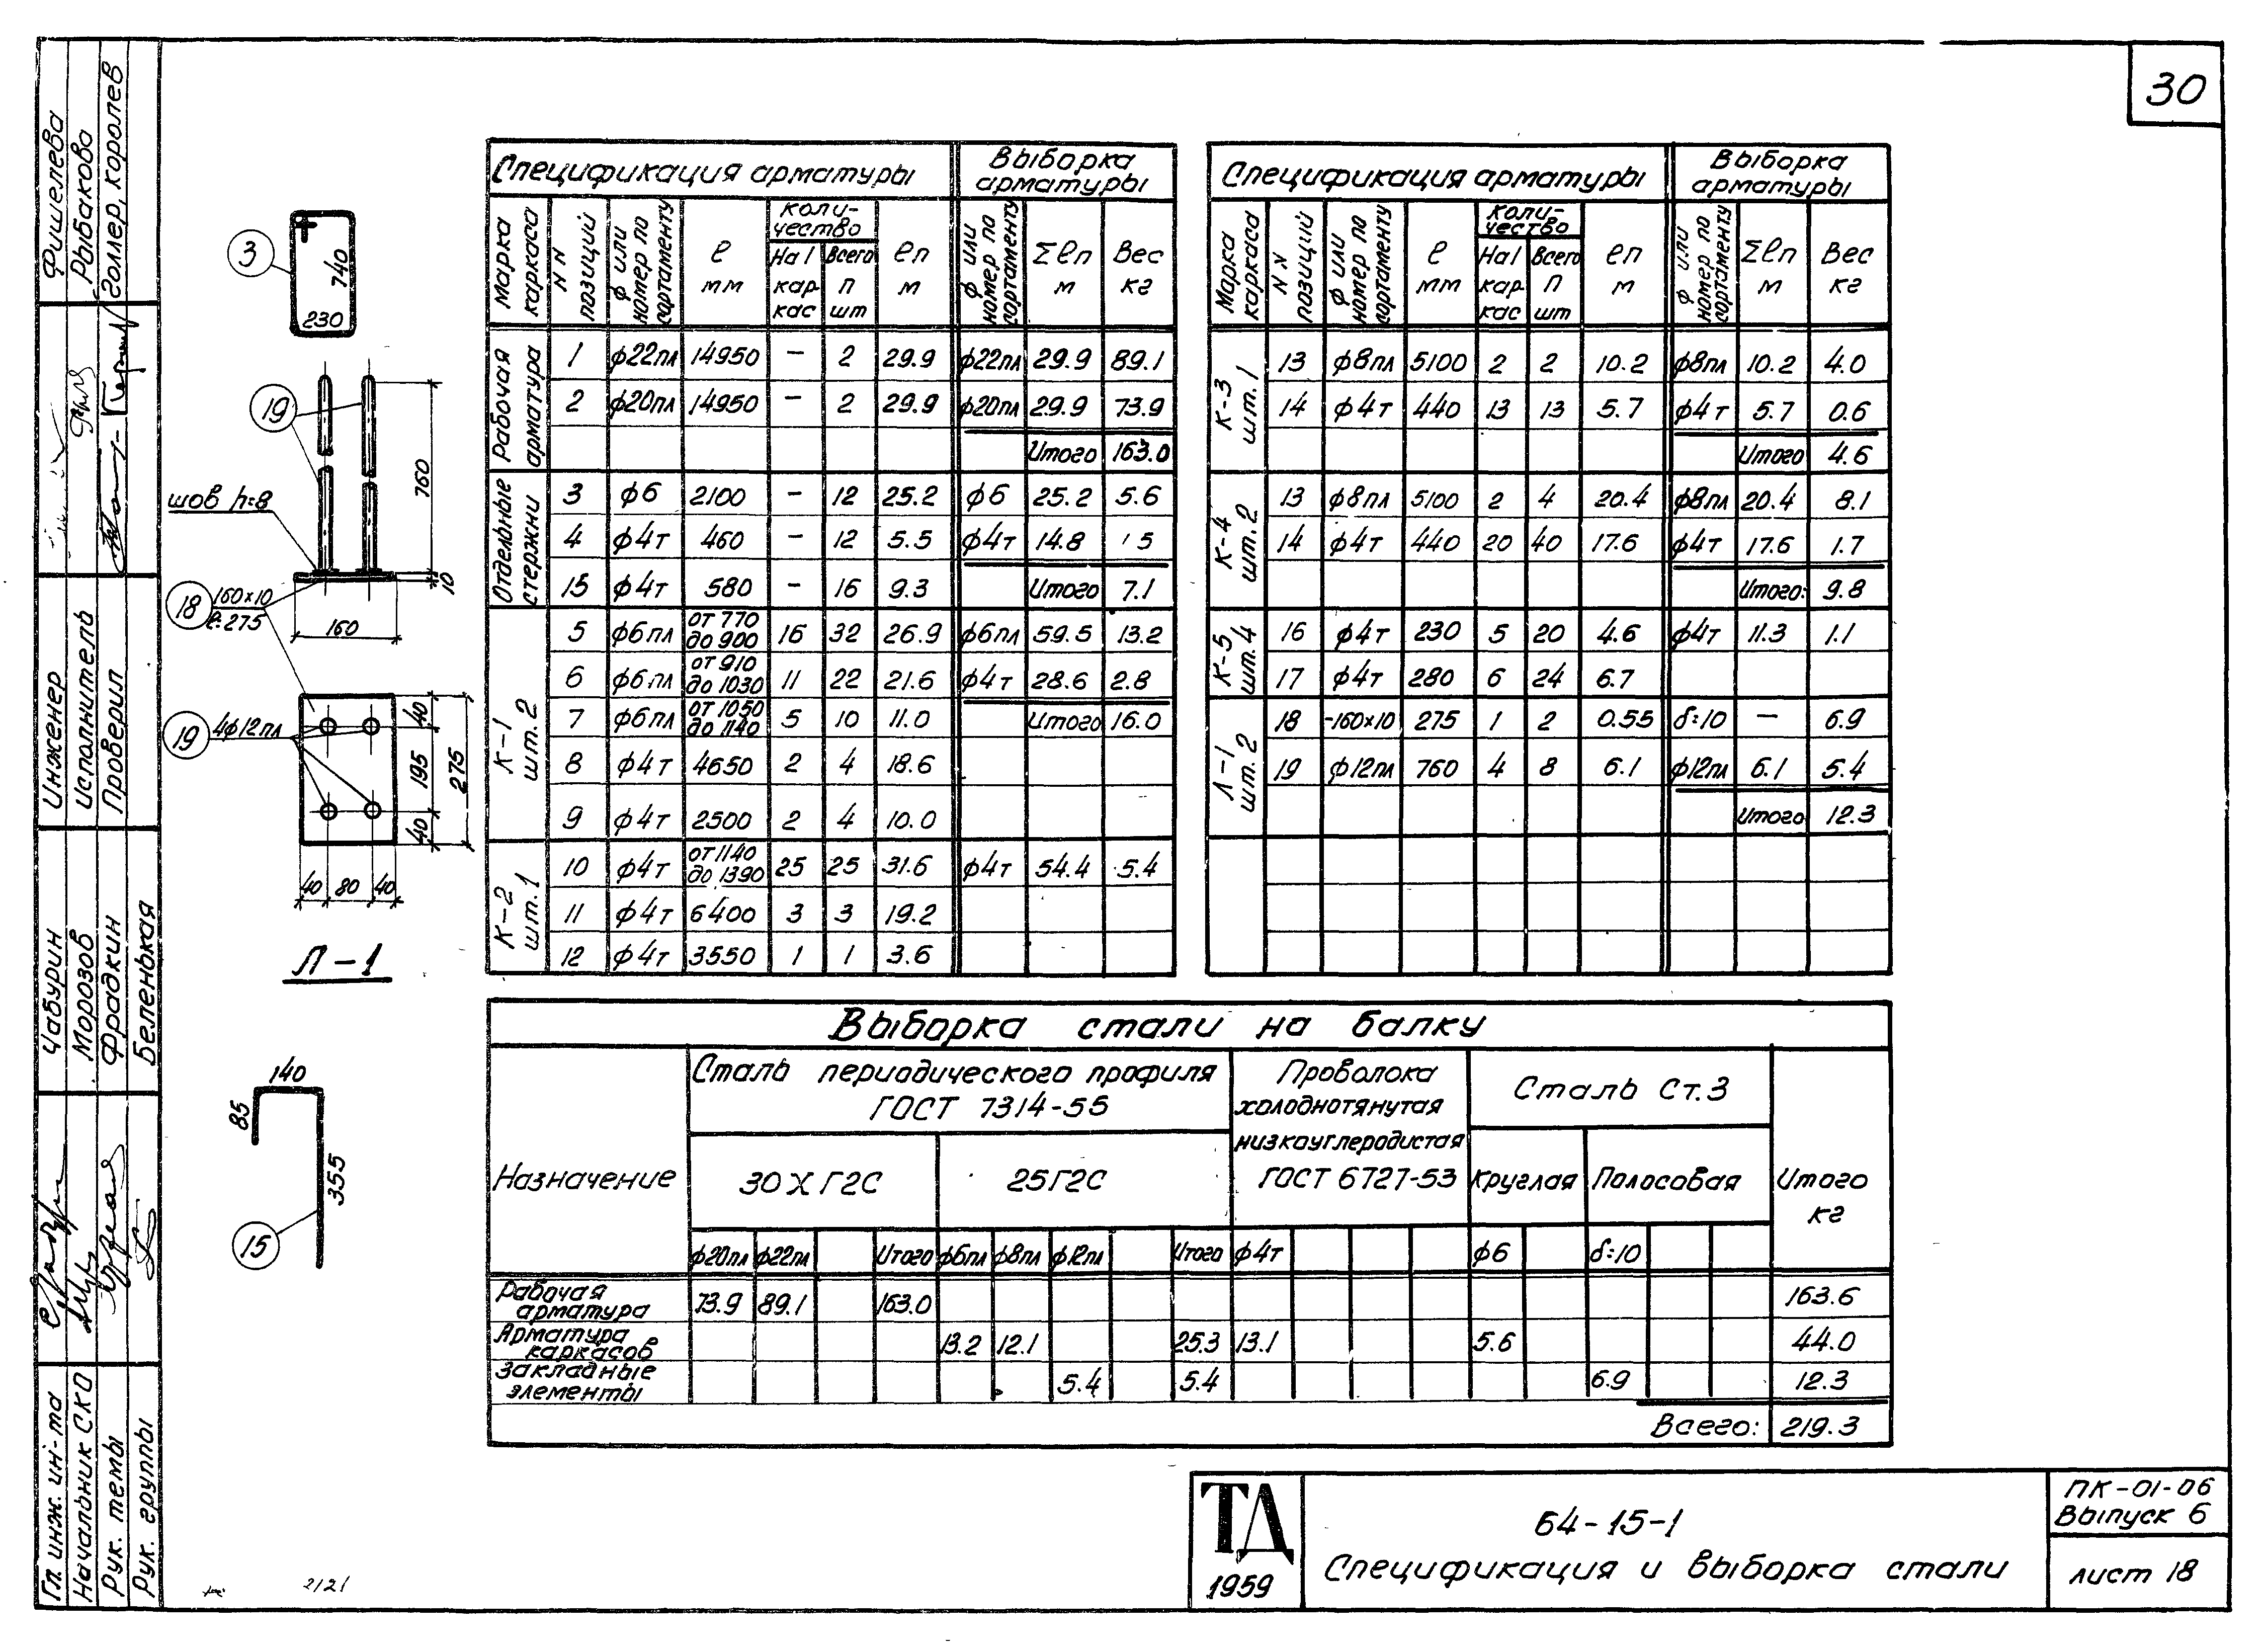 30
3
740
230
19
760
шов h=8
18
160×10
ℓ=275
10
160
19
4ф12пл
40
195
275
40
40 80 40
Л-1
140
85
355
15
Спецификация арматуры | Выборка арматуры
Марка каркаса | NN позиций | ф или номер по сортаменту | ℓ мм | Количество На 1 каркас | Всего п шт | ℓп м | ф или номер по сортаменту | Σℓп м | Вес кг
Рабочая арматура
1 ф22пл 14950 – 2 29.9 ф22пл 29.9 89.1
2 ф20пл 14950 – 2 29.9 ф20пл 29.9 73.9
Итого 163.0
Отдельные стержни
3 ф6 2100 – 12 25.2 ф6 25.2 5.6
4 ф4т 460 – 12 5.5 ф4т 14.8 5
15 ф4т 580 – 16 9.3 Итого 7.1
К-1 шт. 2
5 ф6пл от 770 до 900 16 32 26.9 ф6пл 59.5 13.2
6 ф6пл от 910 до 1030 11 22 21.6 ф4т 28.6 2.8
7 ф6пл от 1050 до 1140 5 10 11.0 Итого 16.0
8 ф4т 4650 2 4 18.6
9 ф4т 2500 2 4 10.0
К-2 шт. 1
10 ф4т от 1140 до 1390 25 25 31.6 ф4т 54.4 5.4
11 ф4т 6400 3 3 19.2
12 ф4т 3550 1 1 3.6
Спецификация арматуры | Выборка арматуры
Марка каркаса | NN позиций | ф или номер по сортаменту | ℓ мм | Количество На 1 каркас | Всего п шт | ℓп м | ф или номер по сортаменту | Σℓп м | Вес кг
К-3 шт. 1
13 ф8пл 5100 2 2 10.2 ф8пл 10.2 4.0
14 ф4т 440 13 13 5.7 ф4т 5.7 0.6
Итого 4.6
К-4 шт. 2
13 ф8пл 5100 2 4 20.4 ф8пл 20.4 8.1
14 ф4т 440 20 40 17.6 ф4т 17.6 1.7
Итого: 9.8
К-5 шт. 4
16 ф4т 230 5 20 4.6 ф4т 11.3 1.1
17 ф4т 280 6 24 6.7
Л-1 шт. 2
18 -160×10 275 1 2 0.55 δ=10 – 6.9
19 ф12пл 760 4 8 6.1 ф12пл 6.1 5.4
Итого 12.3
Выборка стали на балку
Назначение | Сталь периодического профиля ГОСТ 7314-55 | Проволока холоднотянутая низкоуглеродистая ГОСТ 6727-53 | Сталь Ст.3 | Итого кг
30ХГ2С | 25Г2С | Круглая | Полосовая
ф20пл ф22пл Итого ф6пл ф8пл ф12пл Итого ф4т ф6 δ=10
Рабочая арматура 73.9 89.1 163.0 163.6
Арматура каркасов 13.2 12.1 25.3 13.1 5.6 44.0
Закладные элементы 5.4 5.4 6.9 12.3
Всего: 219.3
ТД
1959
Б4-15-1
Спецификация и выборка стали
ПК-01-06
Выпуск 6
лист 18
Гл. инж. ин-та Чабурин Инженер Фишелева
Начальник СКО Морозов Исполнитель Рыбакова
Рук. темы Фрадкин Проверил Голлер, Королев
Рук. группы Беленькая
2121